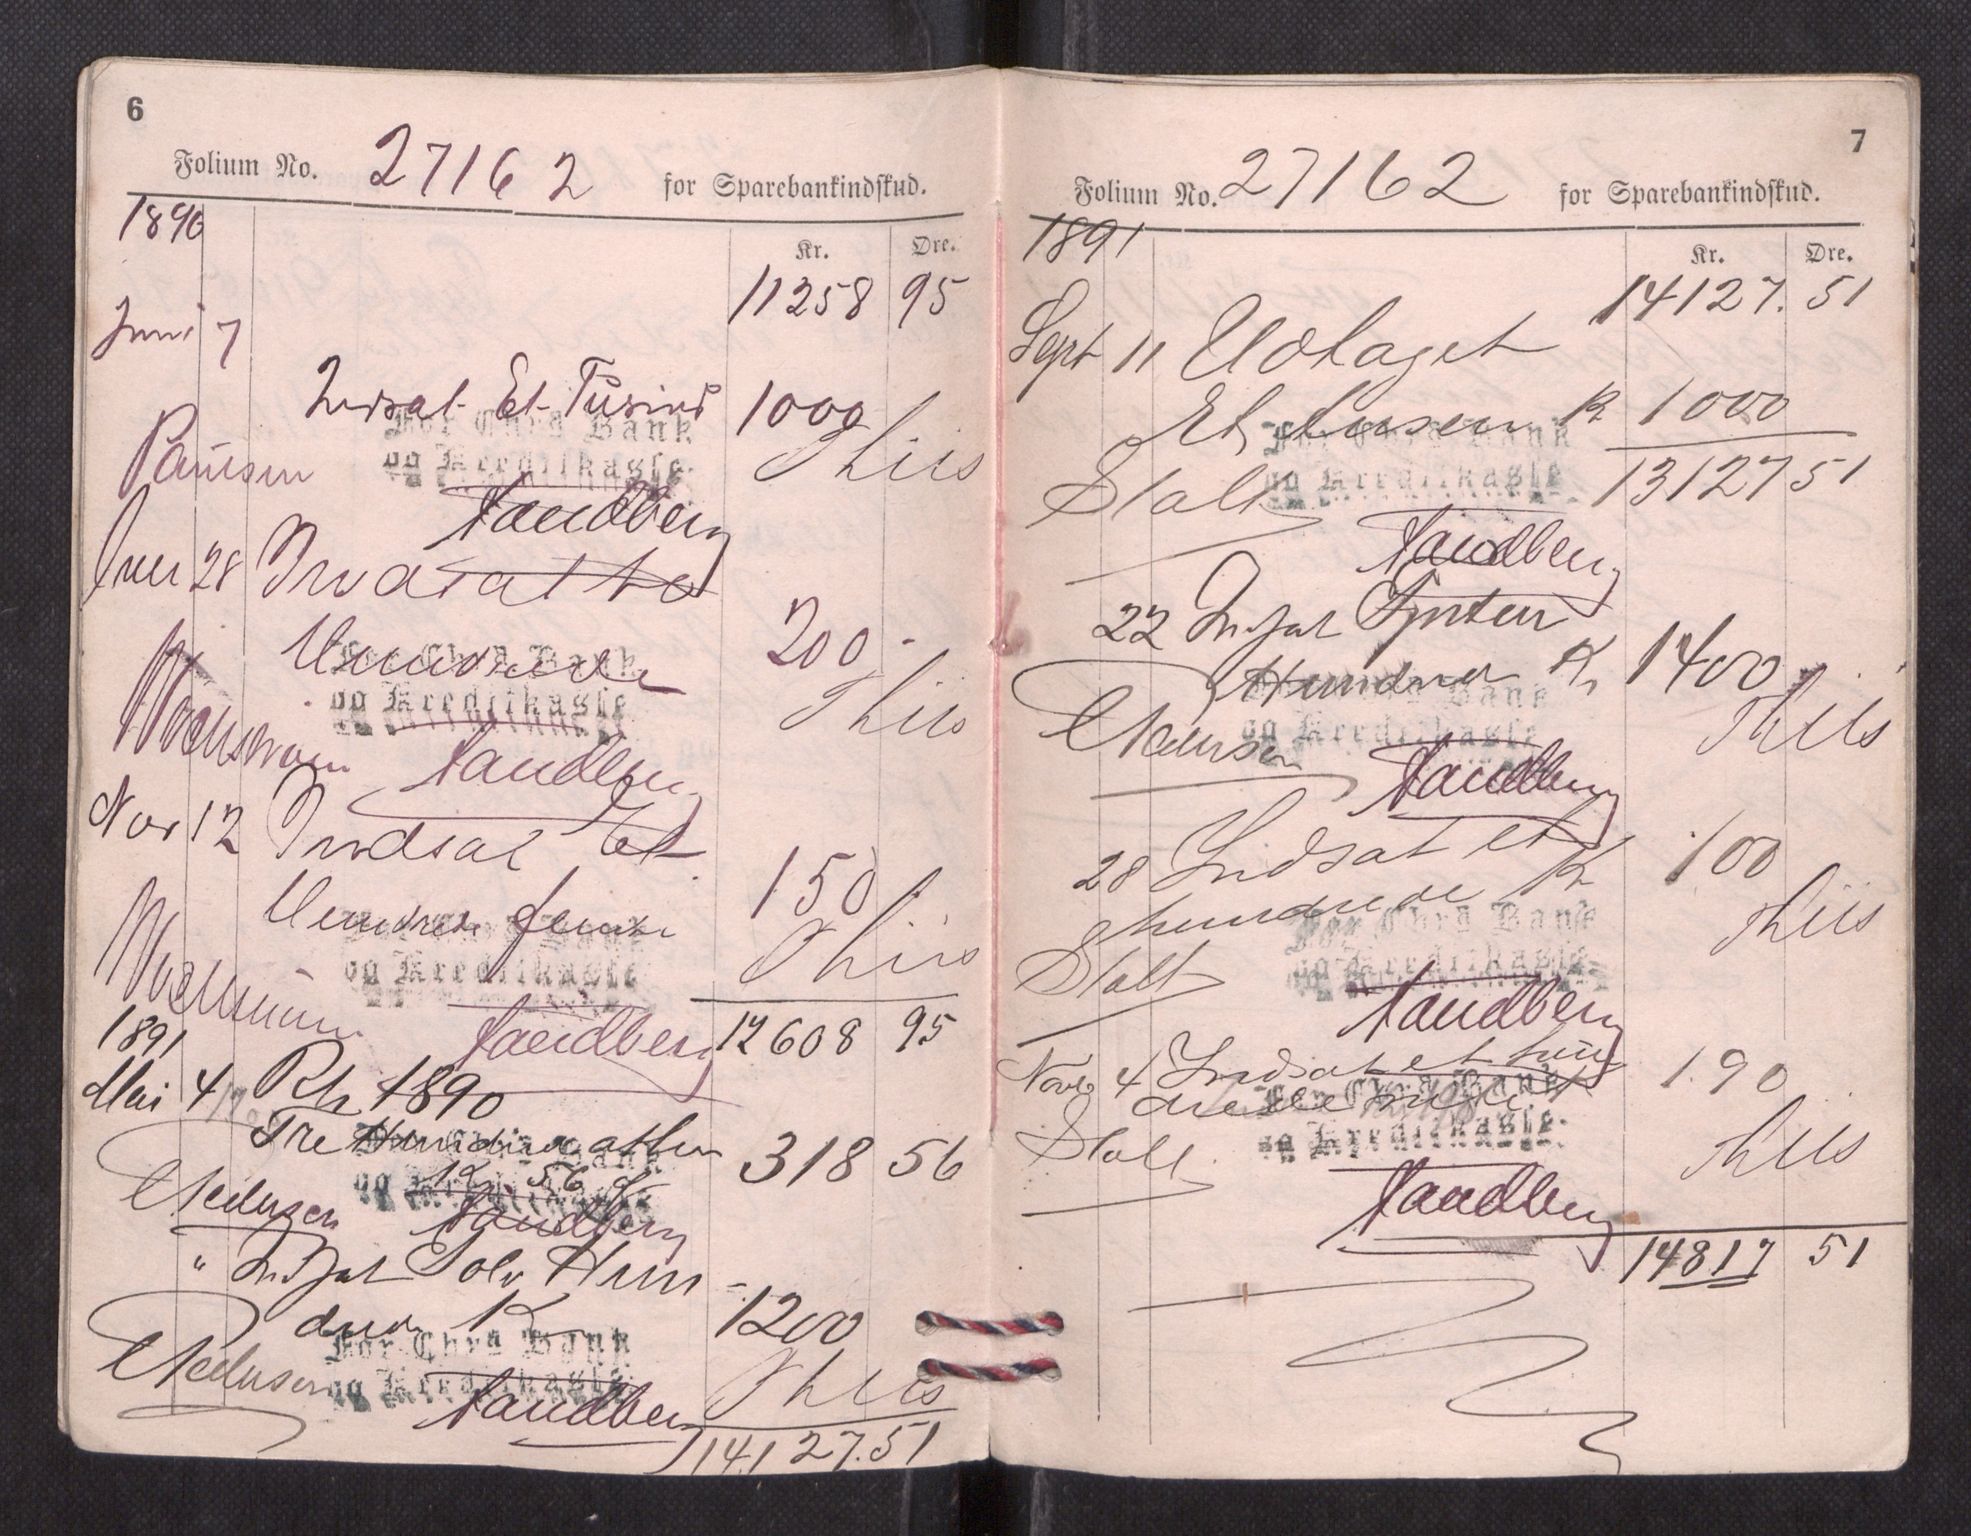 6
Folium No. 27162 for Sparebankindskud.
1890
Kr. Øre.
11258 95
Juni 7
Indsat Et Tusind 1000
For Chra Bank
og Kreditkasse
Paulsen Thiis
Sandberg
28 Indsat to
Hundrede 200 -
For Chra Bank
og Kreditkasse
Thiis
Sandberg
Nov 12 Indsat Et
Hundrede femti 150
og Kreditkasse
Thiis
Sandberg 12608 95
1891
Mai 4 Rt 1890
Tre Hundrede atten 318 56
Kr 56 ø
og Kreditkasse
CPedersen Sandberg
" Indsat Tolv Hun-
drede Kr 1200
For Chra Bank
og Kreditkasse
CPedersen Thiis
Sandberg
14127.51
7
Folium No. 27162 for Sparebankindskud.
1891
Kr. Øre.
14127. 51
Sept 11 Udtaget
Et tusen Kr 1000
For Chra Bank
og Kreditkasse
Stalt 13127 51
Sandberg
22 Indsat Fjorten
Hundrede Kr 1400
Bank
og Kreditkasse
CPedersen Thiis
Sandberg
28 Indsat et
hundrede Kr 100
For Chra Bank
og Kreditkasse
Stalt Thiis
Sandberg
Novb 4 Indsat et hun
drede nitti Kr 190
For Chra Bank
og Kreditkasse
Stalt Thiis
Sandberg
14817 51